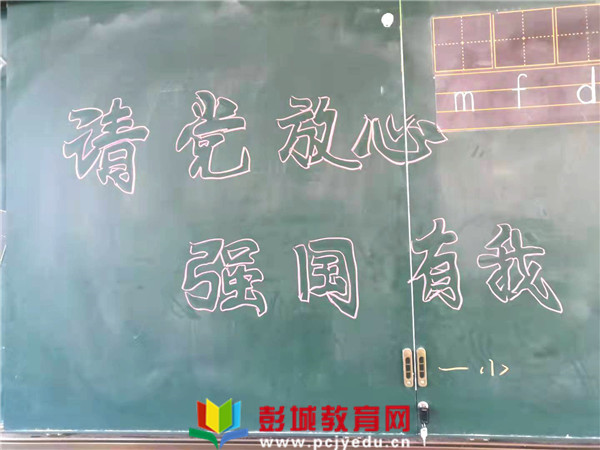 m f d
请党放心
强国有我
一(小)
彭城教育网
www.pcjyedu.cn